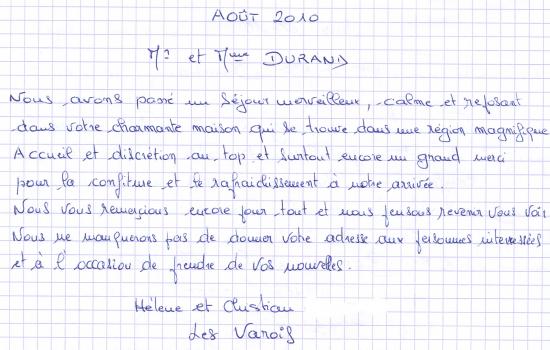 AOÛT 2010
Mr et Mme DURAND
Nous avons passé un séjour merveilleux, calme et reposant
dans votre charmante maison qui se trouve dans une région magnifique
Accueil et discrétion au top et surtout encore un grand merci
pour la confiture et le rafraichissement à notre arrivée.
Nous vous remercions encore pour tout et nous pensons revenir vous voir
Nous ne manquerons pas de donner votre adresse aux personnes interessées
et à l'occasion de prendre de vos nouvelles.
Hélène et Christian
Les Varois